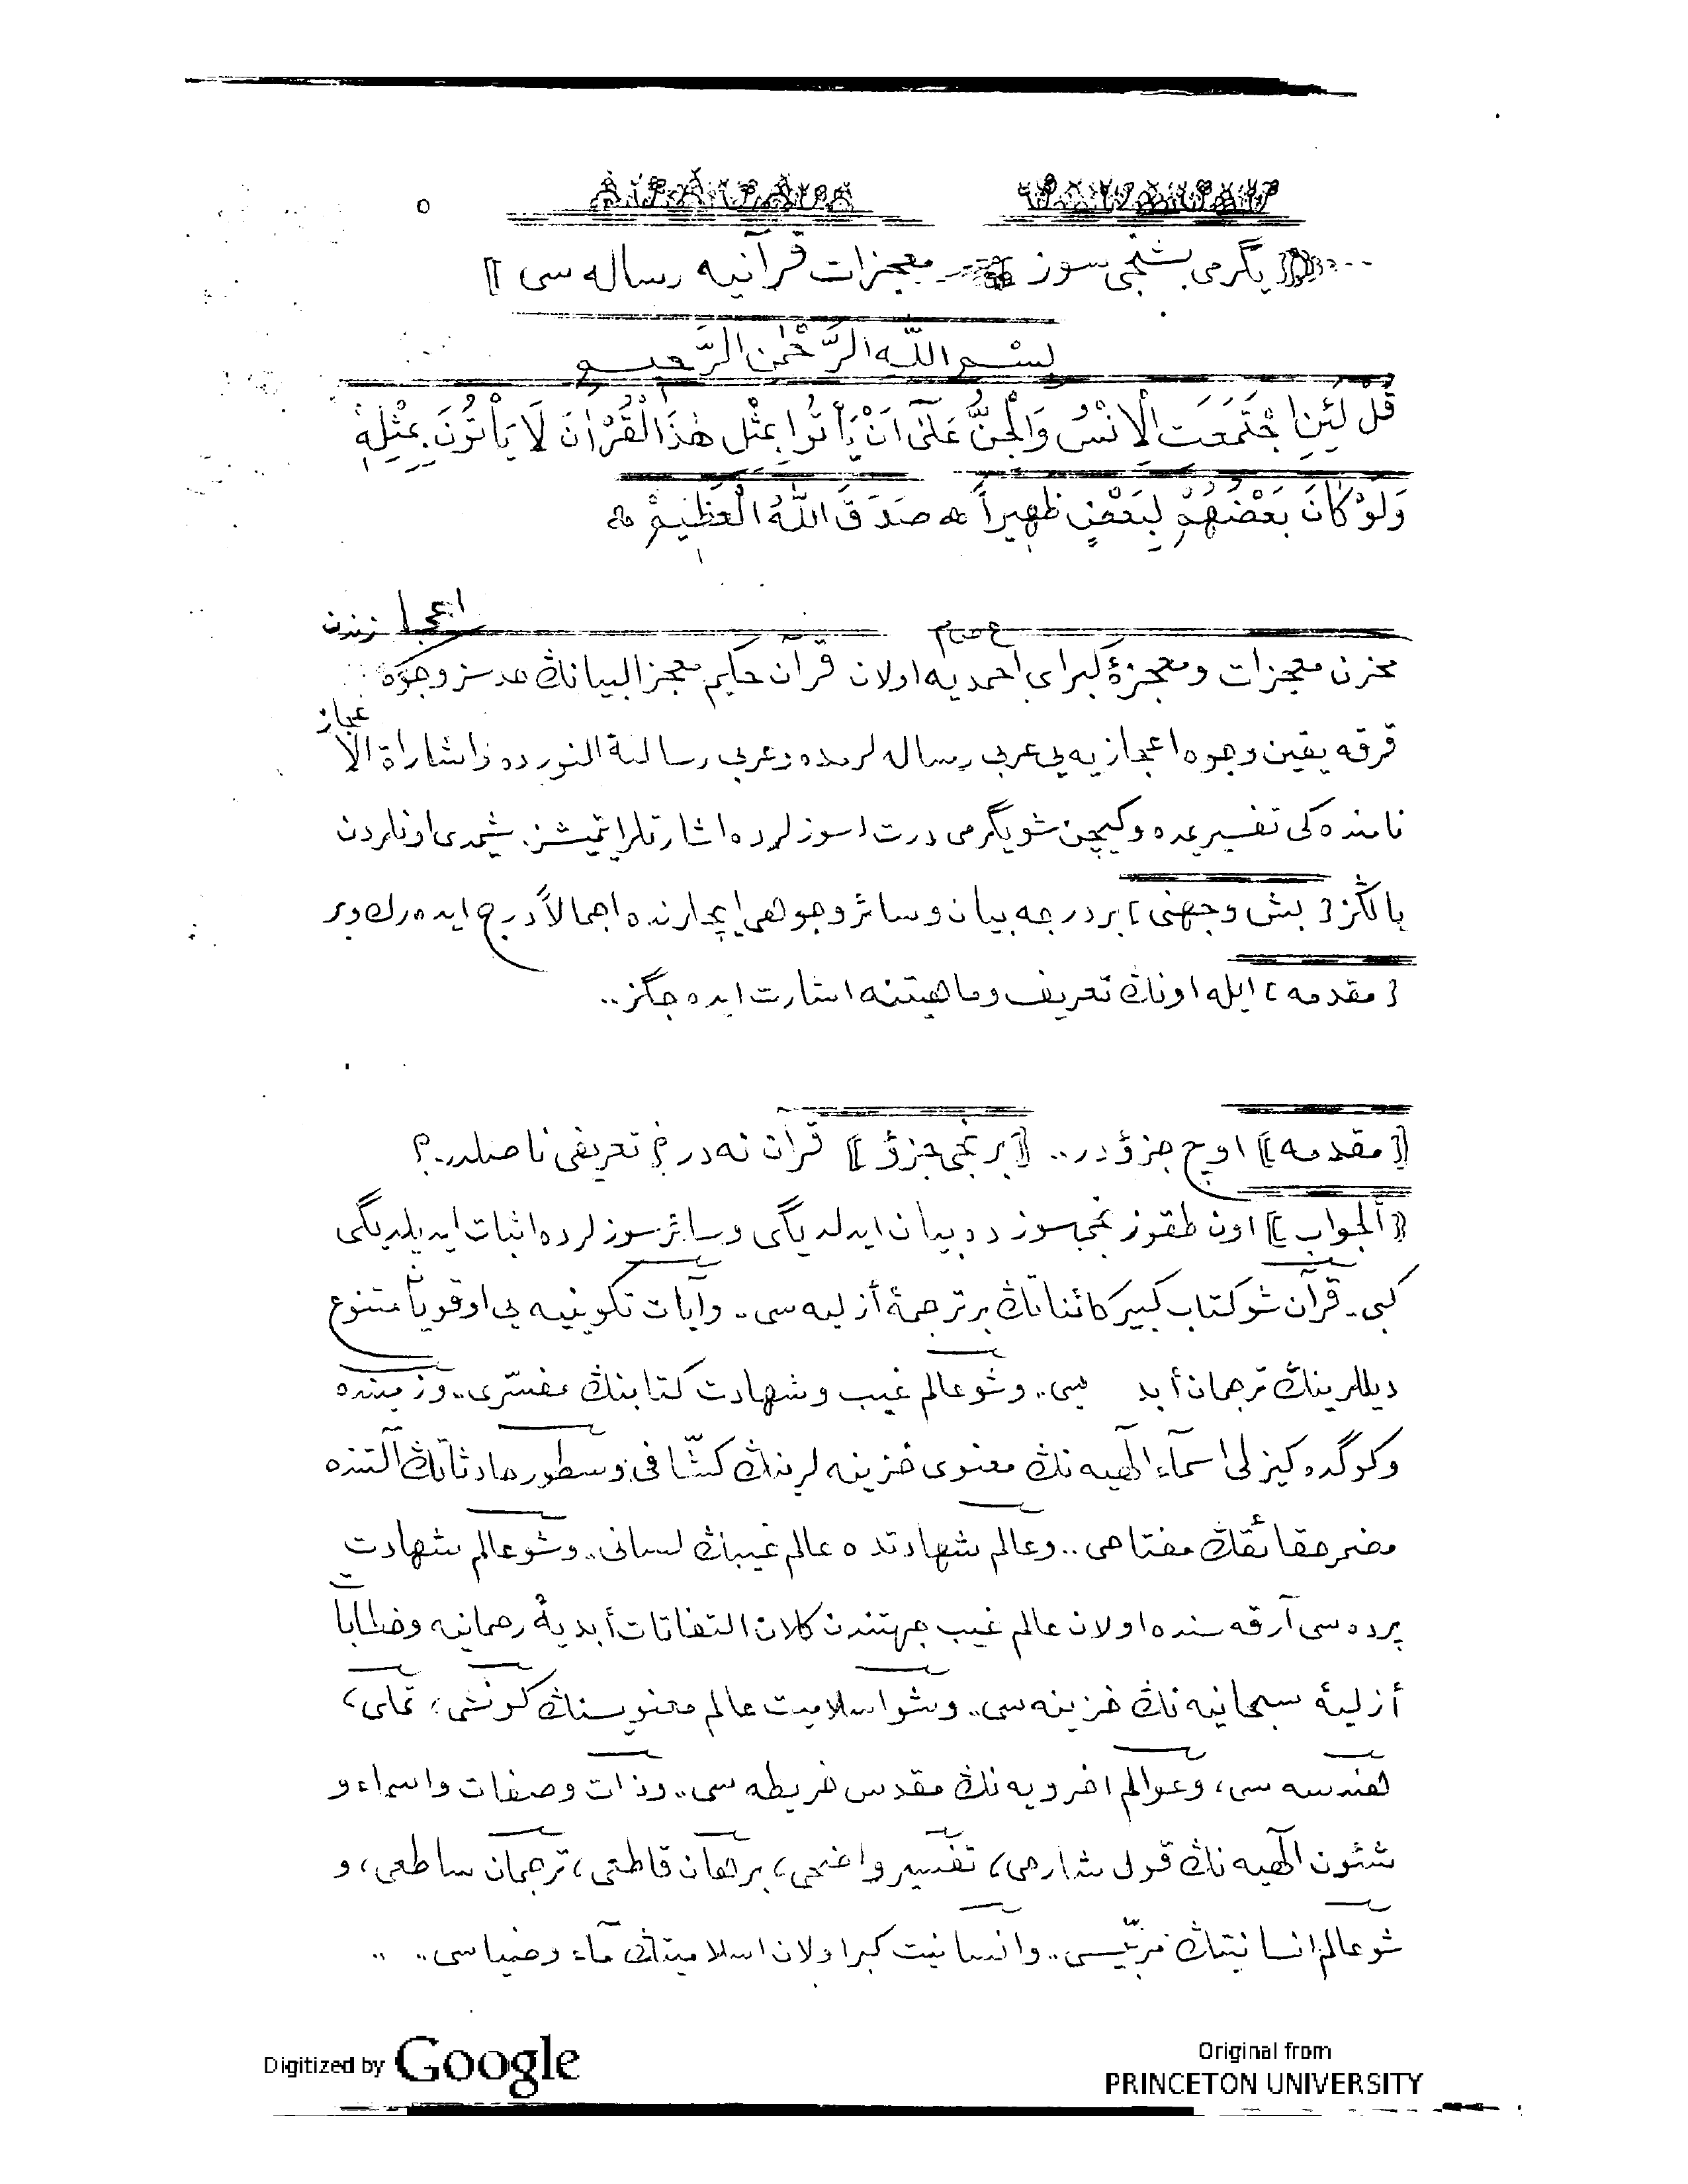 ٥
يگرمى بشنجى سوز معجزات قرآنيه رساله سى ⟧
بِسْمِ اللّٰهِ الرَّحْمٰنِ الرَّحِيمِ
قُلْ لَئِنِ اجْتَمَعَتِ الْاِنْسُ وَالْجِنُّ عَلٰٓى اَنْ يَأْتُوا بِمِثْلِ هٰذَا الْقُرْاٰنِ لَا يَأْتُونَ بِمِثْلِهِ
وَلَوْ كَانَ بَعْضُهُمْ لِبَعْضٍ ظَهِيراً ۞ صَدَقَ اللّٰهُ الْعَظِيمُ ۞
ع ص م
مخزن معجزات و معجزۀ كبراى احمديه اولان قرآن حكيم معجز البيانڭ حدسز وجوۀ اعجازندن
قرقه يقين وجوه اعجازيه يى عربى رساله لرمده و عربى رسالة النورده و اشاراة الاعجاز
نامنده كى تفسيرمده و كچن شو يگرمى درت سوزلرده اشارتلر ايتمشز. شيمدى اونلردن
يالڭز [ بش وجهنى ] بر درجه بيان و سائر وجوهى ايچلرنده اجمالاً درج ايده رك و بر
[ مقدمه ] ايله اونڭ تعريف و ماهيتنه اشارت ايده جگز..
⟦ مقدمه ⟧ اوچ جزؤدر.. ⟦ برنجى جزؤ ⟧ قرآن نه در؟ تعريفى ناصلدر.؟
⟦ ألجواب ⟧ اون طقوزنجى سوزده بيان ايدلديگى و سائر سوزلرده اثبات ايديلديگى
كبى.. قرآن شو كتاب كبير كائناتڭ بر ترجمۀ أزليه سى.. و آيات تكوينيه يى اوقويان متنوع
ديللرينڭ ترجمان أبديسى.. و شو عالم غيب و شهادت كتابنڭ مفسّرى.. و زمينده
و كوگده كيزلى اسمآء الٓهيه نڭ معنوى خزينه لرينڭ كشّافى.. و سطور حادثاتڭ آلتنده
مضمر حقائقڭ مفتاحى.. و عالم شهادتده عالم غيبڭ لسانى.. و شو عالم شهادت
پرده سى آرقه سنده اولان عالم غيب جهتندن كلان التفاتات أبديۀ رحمانيه و خطابات
أزليۀ سبحانيه نڭ خزينه سى.. و شو اسلاميت عالم معنويسنڭ كونشى، تملى،
هندسه سى، و عوالم اخرويه نڭ مقدس خريطه سى.. و ذات و صفات و اسماء و
شئون الٓهيه نڭ قول شارحى، تفسير واضحى، برهان قاطعى، ترجمان ساطعى، و
شو عالم انسانيتڭ مربّيسى.. و انسانيت كبرا اولان اسلاميتڭ مآء و ضياسى..
Digitized by Google
Original from
PRINCETON UNIVERSITY